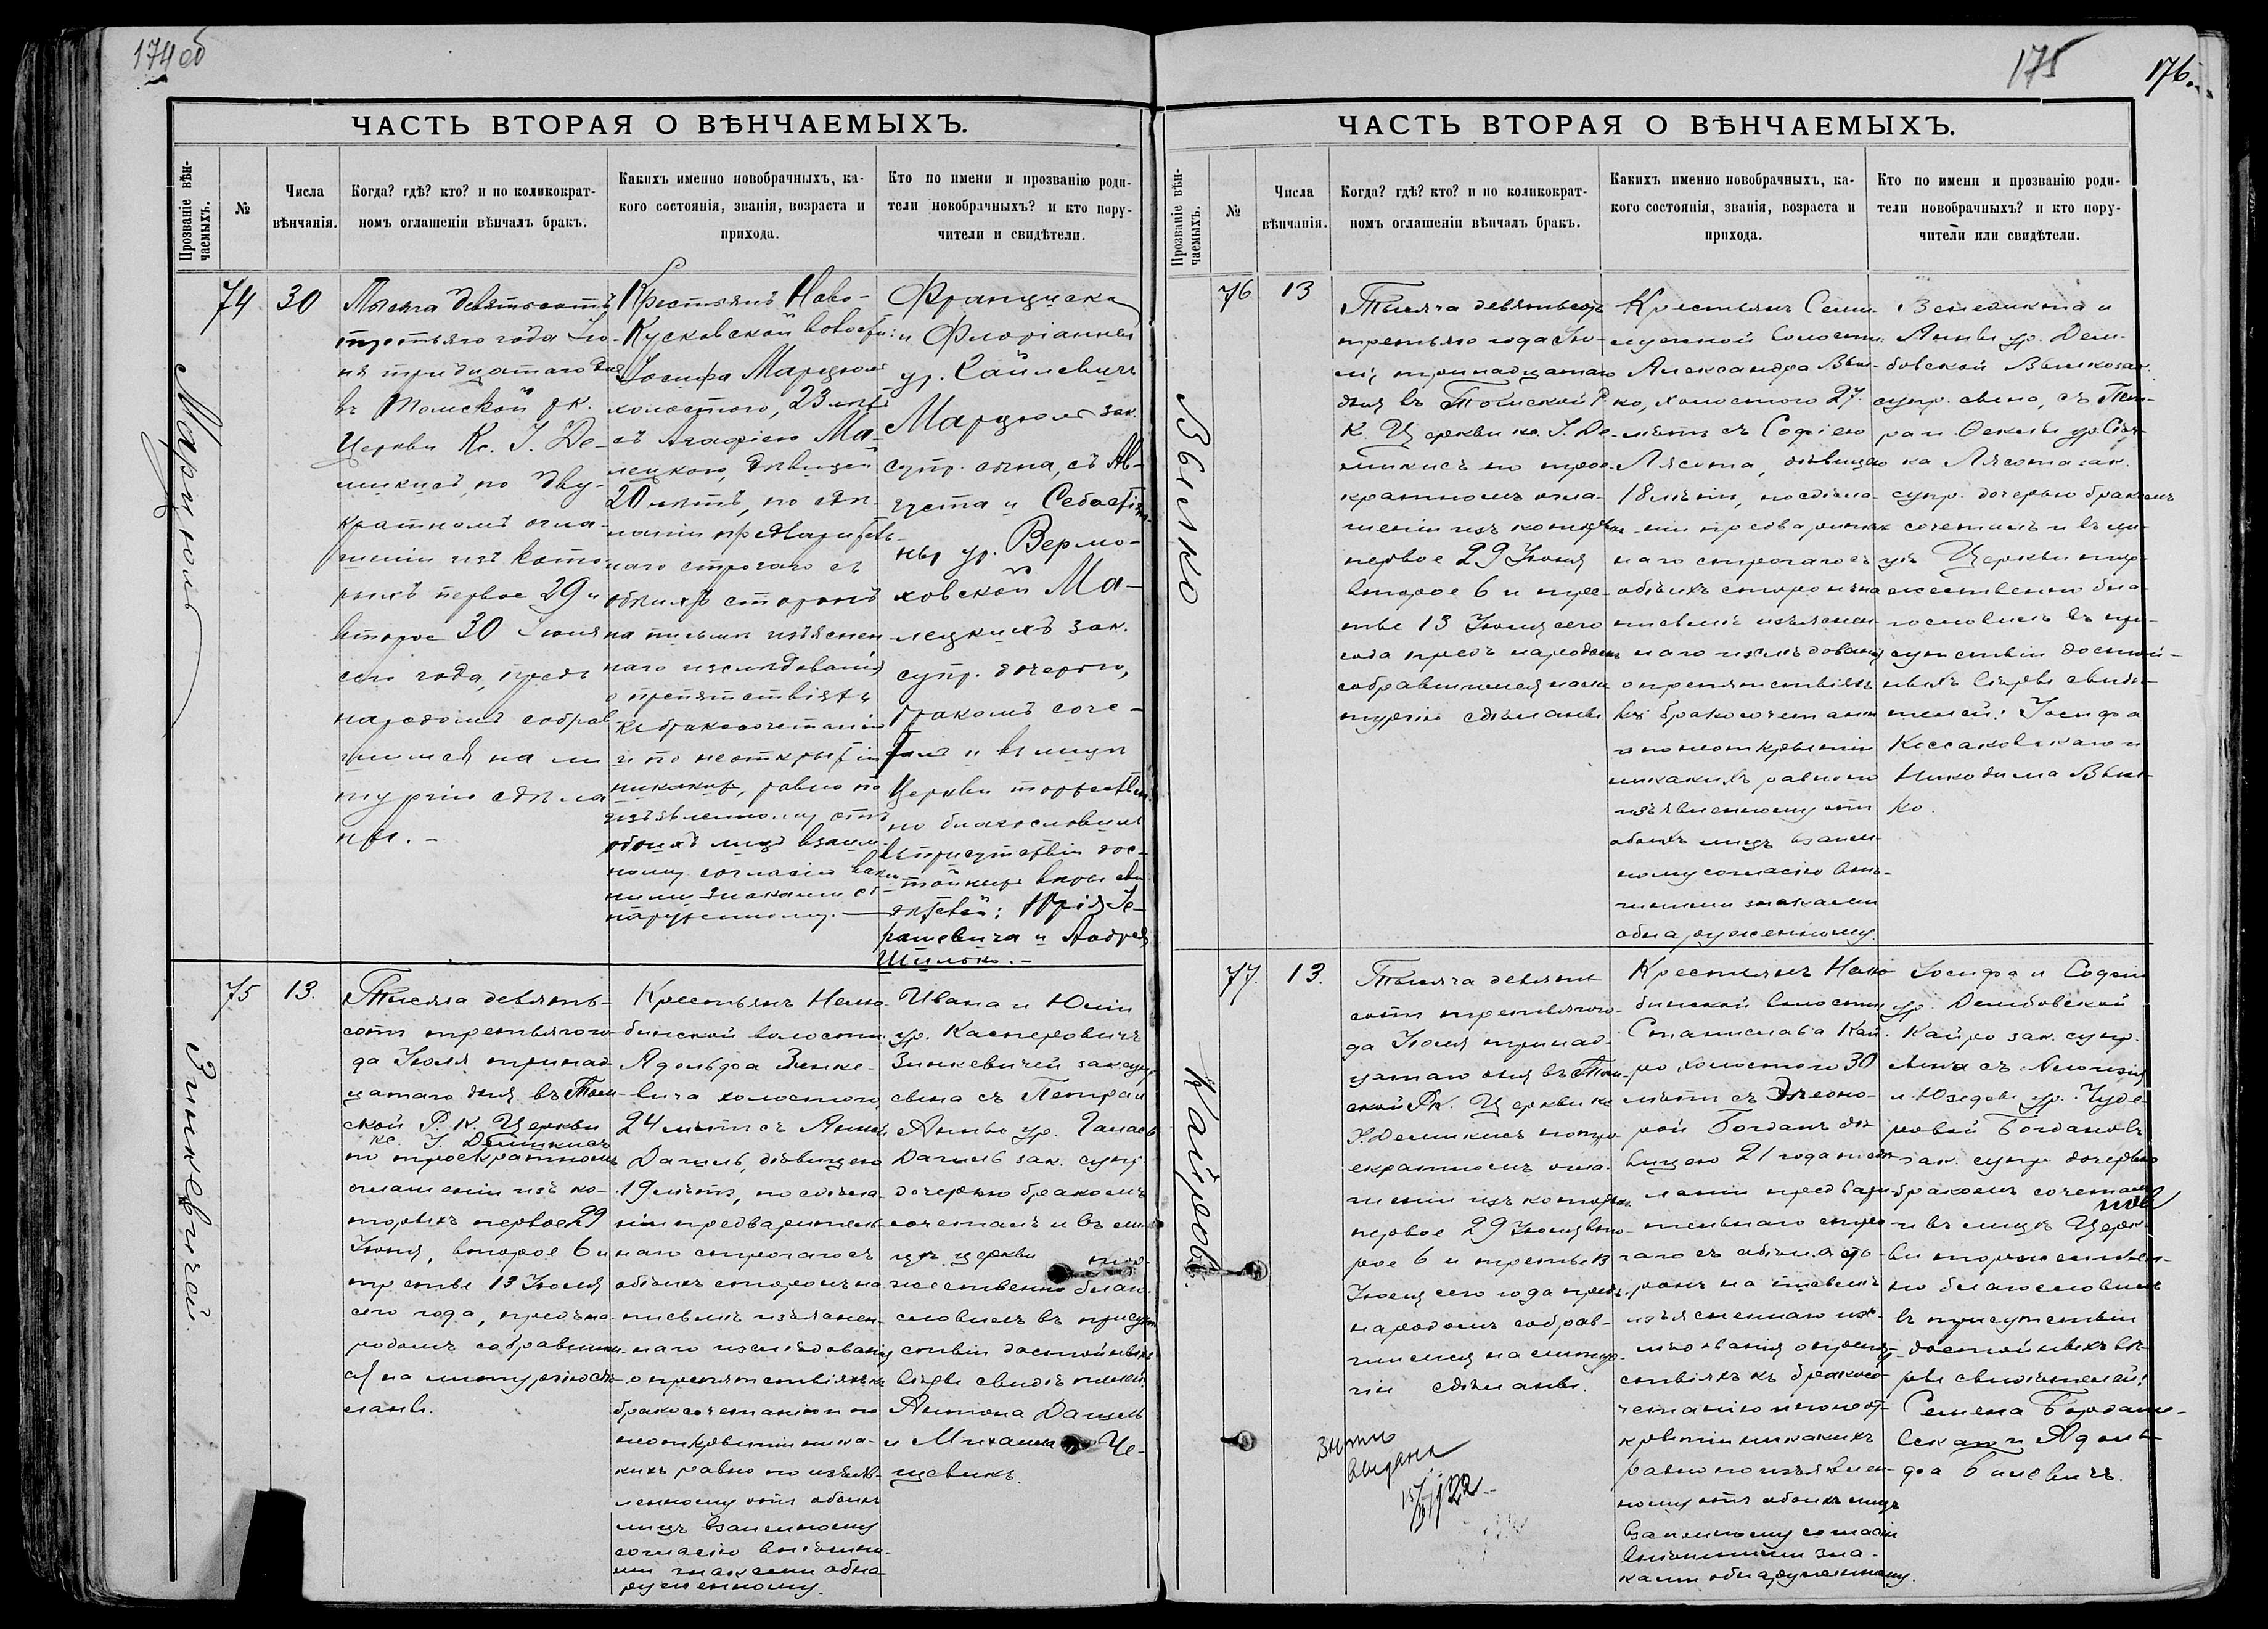 174 об
ЧАСТЬ ВТОРАЯ О ВѢНЧАЕМЫХЪ.
Прозваніе вѣн-
чаемыхъ.
№
Числа
вѣнчанія.
Когда? гдѣ? кто? и по коликократ-
номъ оглашеніи вѣнчалъ бракъ.
Какихъ именно новобрачныхъ, ка-
кого состоянія, званія, возраста и
прихода.
Кто по имени и прозванію роди-
тели новобрачныхъ? и кто пору-
чители и свидѣтели.
Марцюль
74
30
Тысяча девятьсотъ
третьяго года Iю-
ня тридцатаго дня
въ Томской рк.
Церкви Кс. I. Де-
микисъ, по дву-
кратномъ огла-
шеніи изъ кото
рыхъ первое 29 и
второе 30 Iюня
сего года, предъ
народомъ собрав
шимся на ли
тургію сдѣла
ны. -
Крестьянъ Ново-
Кусковской волости:
Iосифа Марцюль
холостого, 23 лѣтъ
съ Агафіею Ма-
лецкою, дѣвицей
20 лѣтъ, по сдѣ-
наго строгаго съ
обѣихъ сторонъ
на письмѣ изъяснен
наго изслѣдованія
о препятствіяхъ
къ бракосочетанію
и по неоткрытіи
никакихъ, равно по
изъявленному отъ
обоихъ лицъ взаим-
ному согласію внѣш
ними знаками об-
наруженному. -
Франциска
и Флоріанны
ур.
Марцюль зак.
супр. сына, съ Ав-
густа и Себастіян-
ны ур.
ховской Ма-
лецкихъ зак.
супр. дочерью,
бракомъ соче-
талъ и въ лицѣ
Церкви торжествен
но благословилъ
въ присутствіи дос-
тойныхъ вѣры сви
дѣтелей:
и Андрея
Зинкевичей.
75
13.
Тысяча девять-
сотъ третьяго го-
да Iюля тринад
цатаго дня въ Том-
ской Р. К. Церкви
кс. I. Демикисъ
по троекратномъ
оглашеніи изъ ко-
торыхъ первое 29
Iюня, второе 6 и
третье 13 Iюля
сего года, предъ на-
родомъ собравшим-
ся на литургію сдѣ-
ланы.
Крестьянъ Нелю-
бинской волости:
Адольфа Зинке-
вича холостого,
24 лѣтъ съ Анной
Даниль, дѣвицею
19 лѣтъ, по сдѣла-
ніи предваритель-
наго строгаго съ
обѣихъ сторонъ на
письмѣ изъяснен-
наго изслѣдованія
о препятствіяхъ къ
бракосочетанію и по
неоткрытіи ника-
кихъ равно по изъяв-
ленному отъ обоихъ
лицъ взаимному
согласію внѣшни-
ми знаками обна
руженному.
Ивана и Юліи
ур. Касперовичъ
Зинкевичей зак. супр
сына съ Петра и
Анны ур.
Даниль зак. супр
дочерью бракомъ
сочеталъ и въ ли-
цѣ церкви тор-
жественно благо-
словилъ въ присут
ствіи достойныхъ
вѣры свидѣтелей:
Антона Даниль
и Михаила Че-
щевикъ.
175
176.
ЧАСТЬ ВТОРАЯ О ВѢНЧАЕМЫХЪ.
Прозваніе вѣн-
чаемыхъ.
№
Числа
вѣнчанія.
Когда? гдѣ? кто? и по коликократ-
номъ оглашеніи вѣнчалъ бракъ.
Какихъ именно новобрачныхъ, ка-
кого состоянія, званія, возраста и
прихода.
Кто по имени и прозванію роди-
тели новобрачныхъ? и кто пору-
чители или свидѣтели.
Вылко
76
13
Тысяча девятьсотъ
третьяго года Iю-
ля тринадцатаго
дня въ Томской Р.
К. Церкви кс. I. Де-
микисъ по трое-
кратномъ огла-
шеніи изъ которыхъ
первое 29 Iюня
второе 6 и тре-
тье 13 Iюля сего
года предъ народомъ
собравшимся на ли
тургію сдѣланы
Крестьянъ Семи-
лужной волости:
Александра Выл-
ко, холостого 27
лѣтъ съ Софіею
Лясота, дѣвицею
18 лѣтъ, по сдѣла-
ніи предваритель
наго строгаго съ
обѣихъ сторонъ на
письмѣ изъяснен
наго изслѣдованія
о препятствіяхъ
къ бракосочетанію
и по неоткрытіи
никакихъ равно по
изъявленному отъ
обоихъ лицъ взаим-
ному согласію внѣ-
шними знаками
обнаруженному.
Венедикта и
Анны ур. Дем-
бовской Вылко зак.
супр. сына, съ Пет-
ра и Феклы ур.
ка Лясота зак.
супр. дочерью бракомъ
сочеталъ и въ ли-
цѣ Церкви тор-
жественно бла-
гословилъ въ при-
сутствіи достой-
ныхъ вѣры свидѣ-
телей: Iосифа
Коссаковскаго и
Никодима Выл-
ко.
Кайровъ.
77.
13.
Тысяча девять
сотъ третьяго го-
да Iюля тринад-
цатаго дня въ Том-
ской Р.К. Церкви кс
I. Демикисъ по тро
екратномъ огла-
шеніи изъ которыхъ
первое 29 Iюня вто-
рое 6 и третье 13
Iюля сего года предъ
народомъ собрав-
шимся на литур-
гіи сдѣланы.
выдана
22
Крестьянъ Нелю
бинской волости
Станислава Кай-
ро, холостого 30
лѣтъ съ Элеоно-
рой Богданъ дѣ-
вицею 21 года по сдѣ-
ланіи предвари-
тельнаго стро-
гаго съ обѣихъ сто-
ронъ на письмѣ
изъясненнаго изс-
лѣдованія о препят-
ствіяхъ къ бракосо-
четанію и по неот-
крытіи никакихъ
равно по изъявлен-
ному отъ обоихъ лицъ
взаимному согласію
внѣшними зна-
ками обнаруженному.
Iосифа и Софіи
ур. Дембовской
Кайро зак. супр.
сына съ Алоизія
и Юзефы ур.
ровой Богдановъ
зак. супр. дочерью
бракомъ сочеталъ
и въ лицѣ Церк-
ви торжествен-
но благословилъ
въ присутствіи
достойныхъ вѣ-
ры свидѣтелей:
Семена
и Адоль-
фа